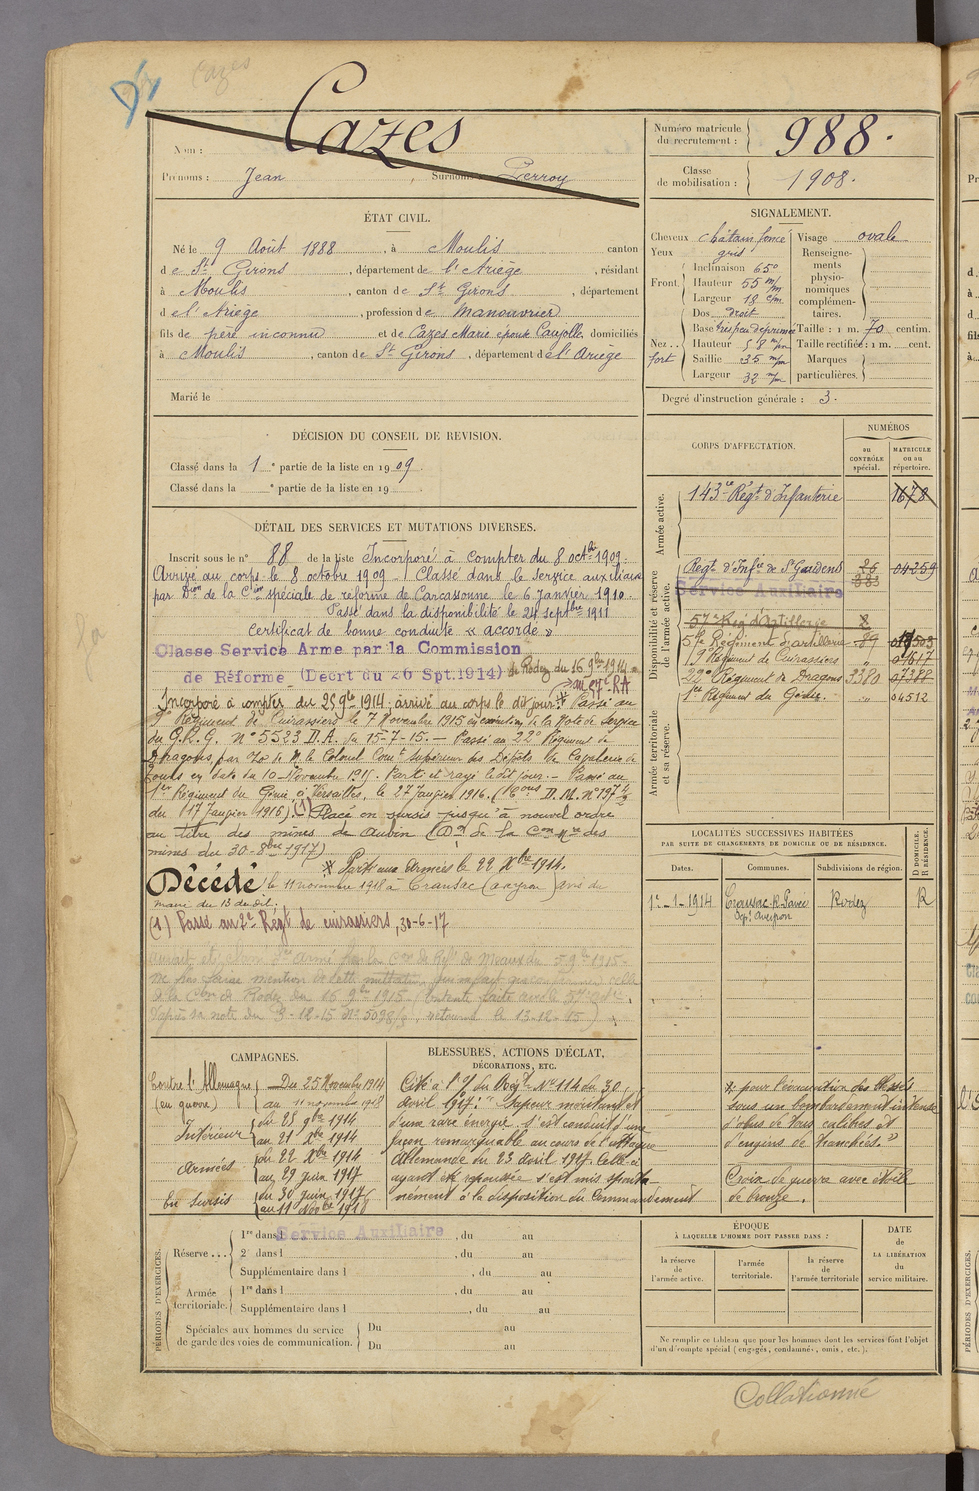 Cazes
Nom : Cazes
Prénoms : Jean , Surnoms : Perroy
Numéro matricule du recrutement : 988.
Classe de mobilisation : 1908.
ÉTAT CIVIL.
Né le 9 Août 1888 , à Moulis canton
de St Girons , département de l'Ariège , résidant
à Moulis , canton de St Girons , département
de l'Ariège , profession de Manouvrier
fils de père inconnu et de Cazes Marie épouse Caujolle domiciliés
à Moulis , canton de St Girons , département de l'Ariège
Marié le
SIGNALEMENT.
Cheveux châtain foncé
Yeux gris
Front Inclinaison 65°
Hauteur 55 m/m
Largeur 18 c/m
Nez fort Dos droit
Base très peu déprimée
Hauteur 58 m/m
Saillie 35 m/m
Largeur 32 m/m
Visage ovale
Renseignements physionomiques complémentaires.
Taille : 1 m. 70 centim.
Taille rectifiée : 1 m. cent.
Marques particulières.
Degré d'instruction générale : 3.
DÉCISION DU CONSEIL DE REVISION.
Classé dans la 1e partie de la liste en 1909.
Classé dans la e partie de la liste en 19
DÉTAIL DES SERVICES ET MUTATIONS DIVERSES.
Inscrit sous le n° 88 de la liste Incorporé à compter du 8 octbre 1909.
Arrivé au corps le 8 octobre 1909. Classé dans le service auxiliaire
par Don de la Cion spéciale de réforme de Carcassonne le 6 Janvier 1910.
Passé dans la disponibilité le 24 septbre 1911
Certificat de bonne conduite « accordé »
Classe Service Armé par la Commission
de Réforme (Decrt du 26 Spt.1914) de Rodez du 16 9bre 1914
au 57e RA
Incorporé à compter du 25 9bre 1914, arrivé au corps le dit jour. * Passé au
9e Régiment de Cuirassiers le 7 Novembre 1915 en exécution de la Note de Service
du G.Q.G. N° 5523 D.A. du 15-7-15. — Passé au 22e Régiment de
Dragons, par Ion de M. le Colonel Comt Supérieur des Dépôts de Cavalerie de
Tours en date du 10 Novembre 1915. Parti et rayé le dit jour. — Passé au
1er Régiment du Génie à Versailles, le 27 Janvier 1916.
du 17 Janvier 1916) (1) Placé en sursis jusqu'à nouvel ordre
au titre des mines de Aubin (Don de la Con Mre des
mines du 30-8bre 1917)
* Parti aux Armées le 22 Xbre 1914.
Décédé le 11 novembre 1918 à Cransac (aveyron) avis du
maire du 13 du dit.
(1) Passé au 2e Régt de cuirassiers, 30-6-17
CORPS D'AFFECTATION.
NUMÉROS
au CONTRÔLE spécial.
MATRICULE ou au répertoire.
Armée active.
143e Régt d'Infanterie 1678
Disponibilité et réserve de l'armée active.
Régt d'Infie de St Gaudens 04259
Service Auxiliaire
57e Régt d'Artillerie
57e Régiment d'artillerie 89
9e Régiment de Cuirassiers " 01617
22e Régiment de Dragons 3380 07388
1er Régiment du Génie. " 04512
Armée territoriale et sa réserve.
LOCALITÉS SUCCESSIVES HABITÉES
PAR SUITE DE CHANGEMENTS DE DOMICILE OU DE RÉSIDENCE.
Dates. Communes. Subdivisions de région. D DOMICILE. R RÉSIDENCE.
1er-1-1914 Cransac Dept Aveyron Rodez R
CAMPAGNES.
Contre l'Allemagne Du 25 Novembre 1914
(en guerre) au 11 novembre 1918
Intérieur du 25 9bre 1914
au 21 Xbre 1914
Armées du 22 Xbre 1914
au 29 juin 1917
En Sursis du 30 juin 1917
au 11 Novbre 1918
BLESSURES, ACTIONS D'ÉCLAT,
DÉCORATIONS, ETC.
Cité à l'O/ du Régt N° 114 du 30
Avril 1917 : "Sapeur méritant et
d'une rare énergie. S'est conduit d'une
façon remarquable au cours de l'attaque
Allemande du 23 Avril 1917. Celle-ci
ayant été repoussée s'est mis sponta
nément à la disposition du Commandement
* pour l'évacuation des blessés
sous un bombardement intense
d'obus de tous calibres et
d'engins de tranchées."
Croix de guerre avec étoile
de bronze.
PÉRIODES D'EXERCICES.
Réserve . . . 1re dans l Service Auxiliaire , du au
2e dans l , du au
Supplémentaire dans l , du au
Armée territoriale. 1re dans l , du au
Supplémentaire dans l , du au
Spéciales aux hommes du service de garde des voies de communication. Du au
Du au
ÉPOQUE
À LAQUELLE L'HOMME DOIT PASSER DANS :
la réserve de l'armée active.
l'armée territoriale.
la réserve de l'armée territoriale
DATE de LA LIBÉRATION du service militaire.
Ne remplir ce tableau que pour les hommes dont les services font l'objet
d'un décompte spécial (engagés, condamnés, omis, etc.).
Collationné